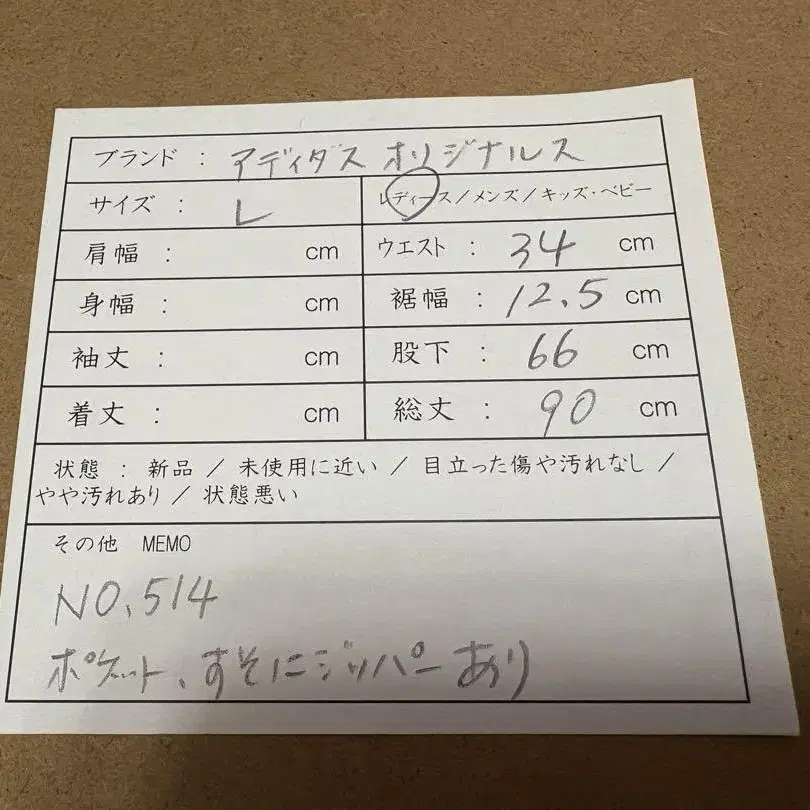 ブランド : アディダス オリジナルス
サイズ : L レディース/メンズ/キッズ・ベビー
肩幅 : cm ウエスト : 34 cm
身幅 : cm 裾幅 : 12.5 cm
袖丈 : cm 股下 : 66 cm
着丈 : cm 総丈 : 90 cm
状態 : 新品 / 未使用に近い / 目立った傷や汚れなし /
やや汚れあり / 状態悪い
その他 MEMO
NO.514
ポケット、すそにジッパーあり